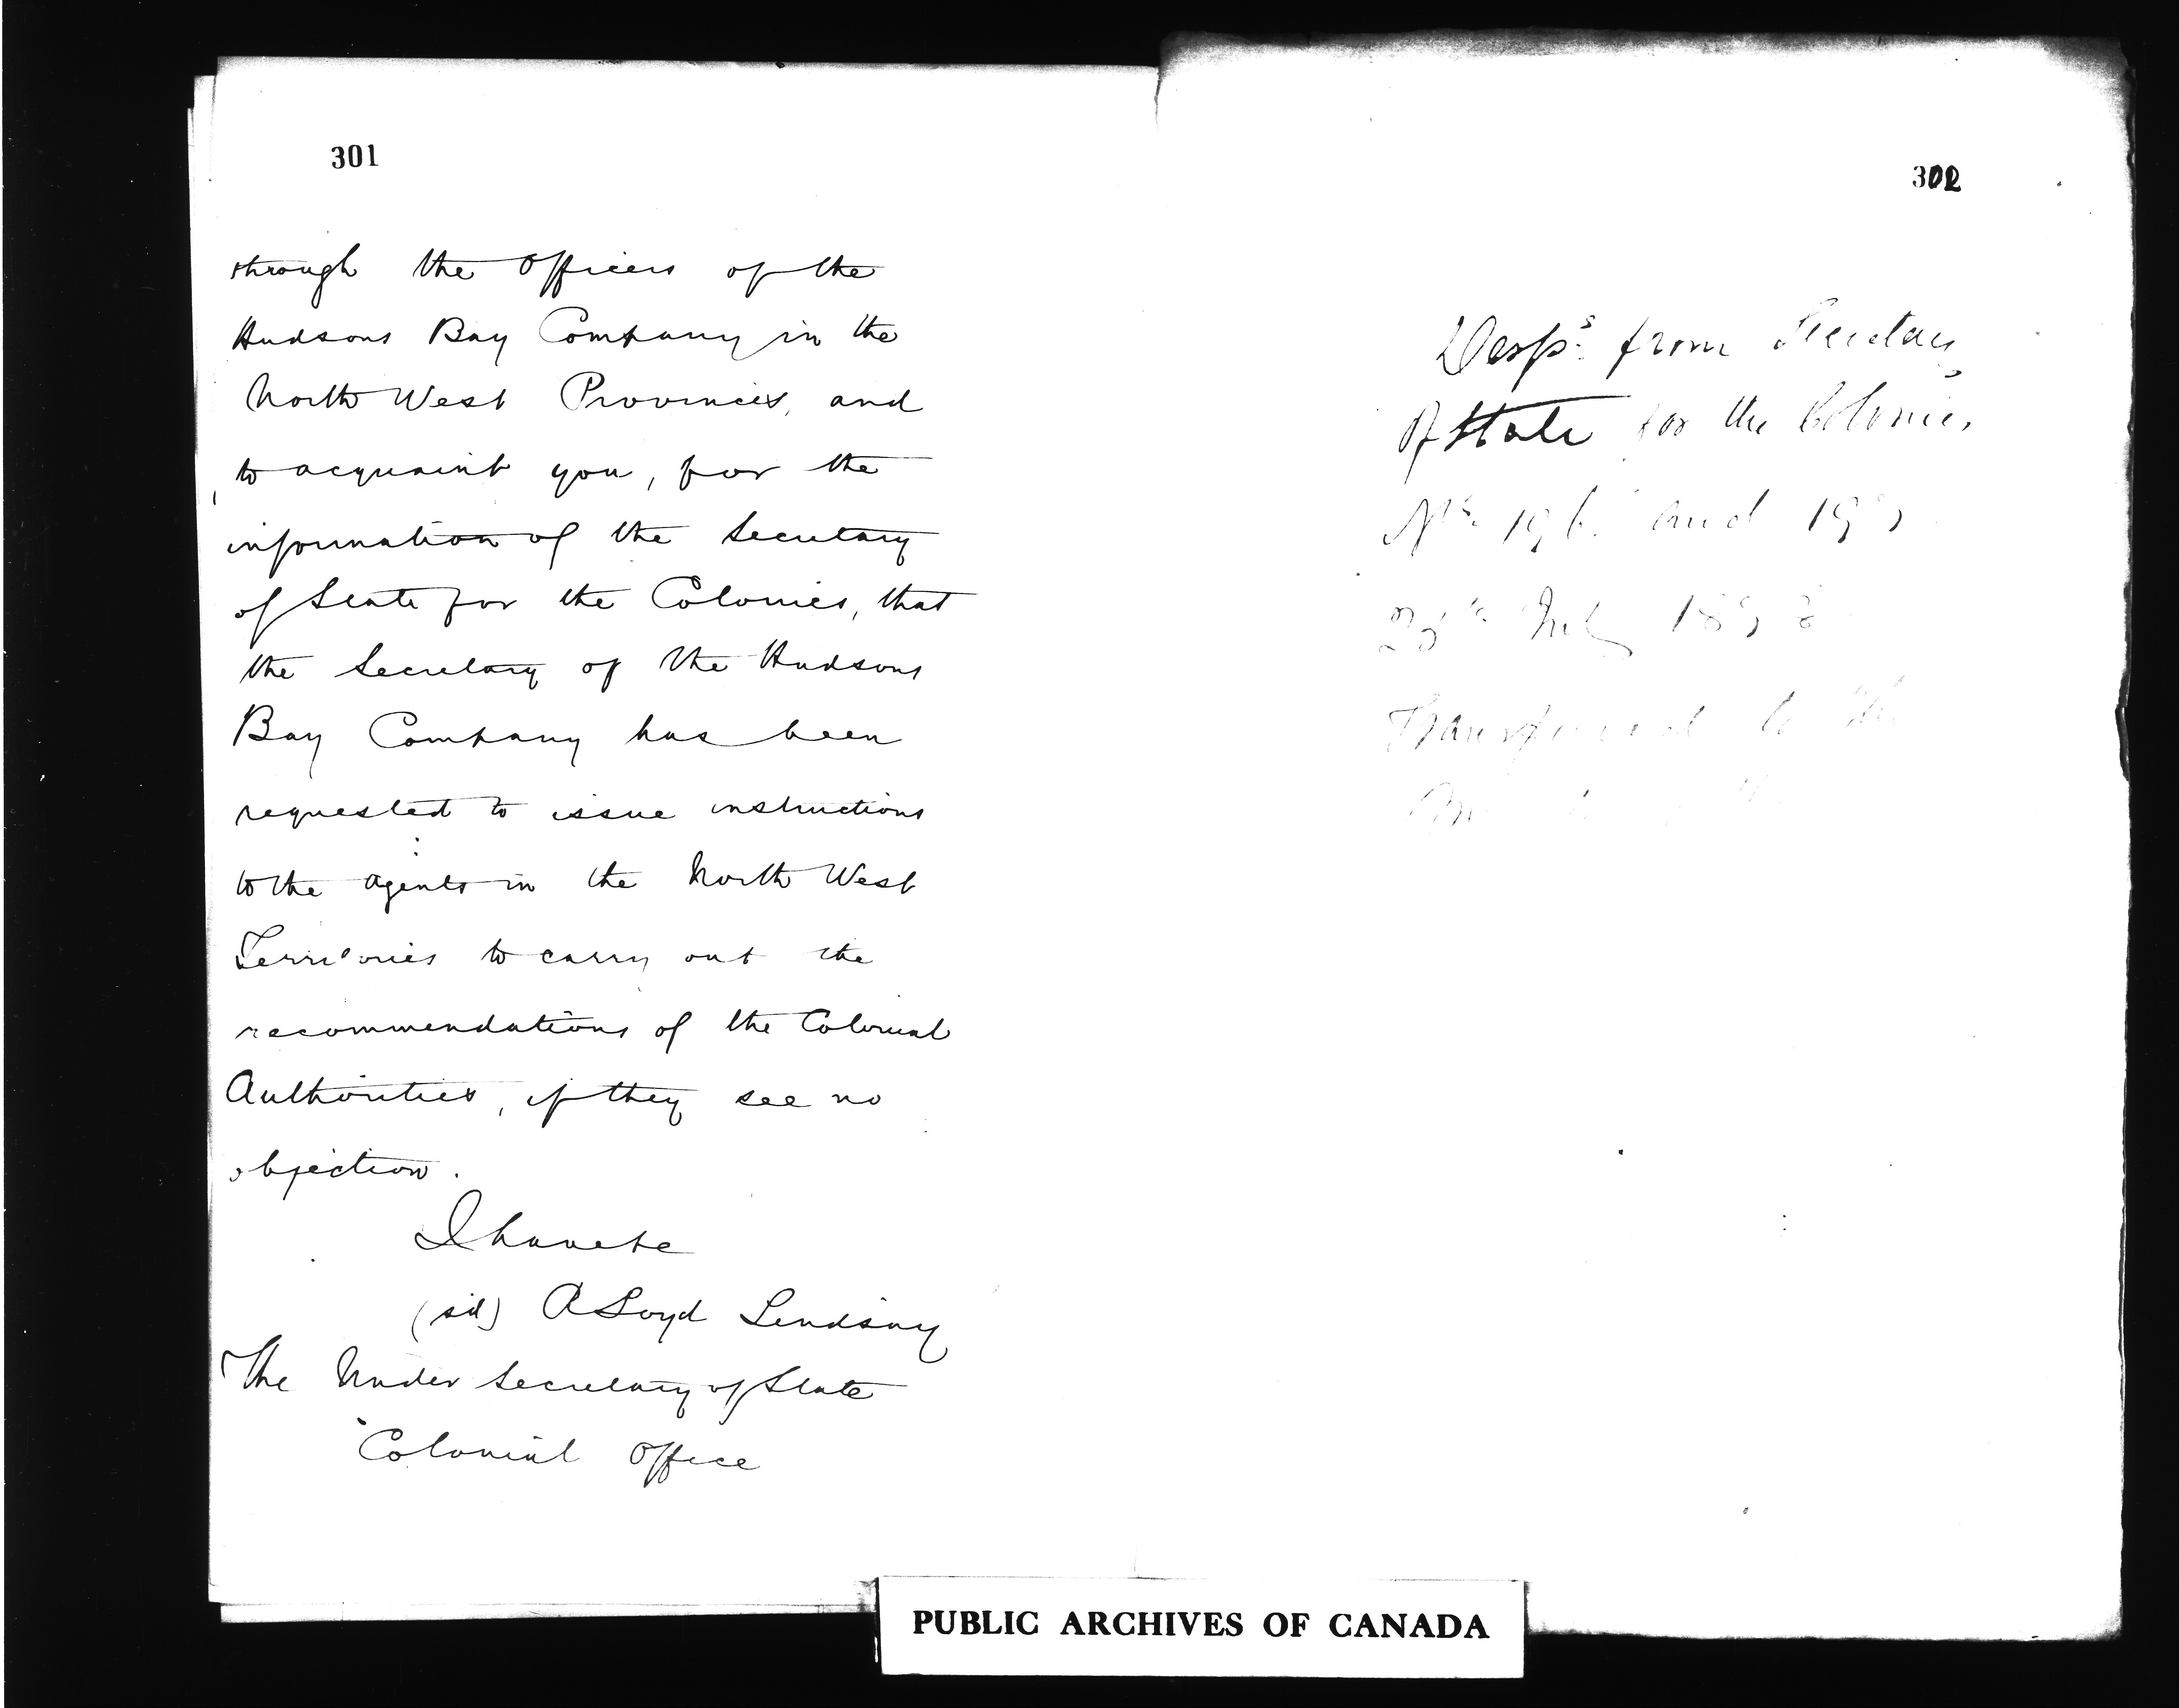 301
through the Officers of the
Hudsons Bay Company in the
North West Provinces, and
to acquaint you, for the
information of the Secretary
of State for the Colonies, that
the Secretary of the Hudsons
Bay Company has been
requested to issue instructions
to the agents in the North West
Territories to carry out the
recommendations of the Colonial
Authorities, if they see no
objection.
I have &c
(sd) A Loyd Lindsay
The Under Secretary of State
Colonial Office
302
Desps from Secretary
of State for the Colonies
Nos. 196 and
July
Transferred to the
PUBLIC ARCHIVES OF CANADA